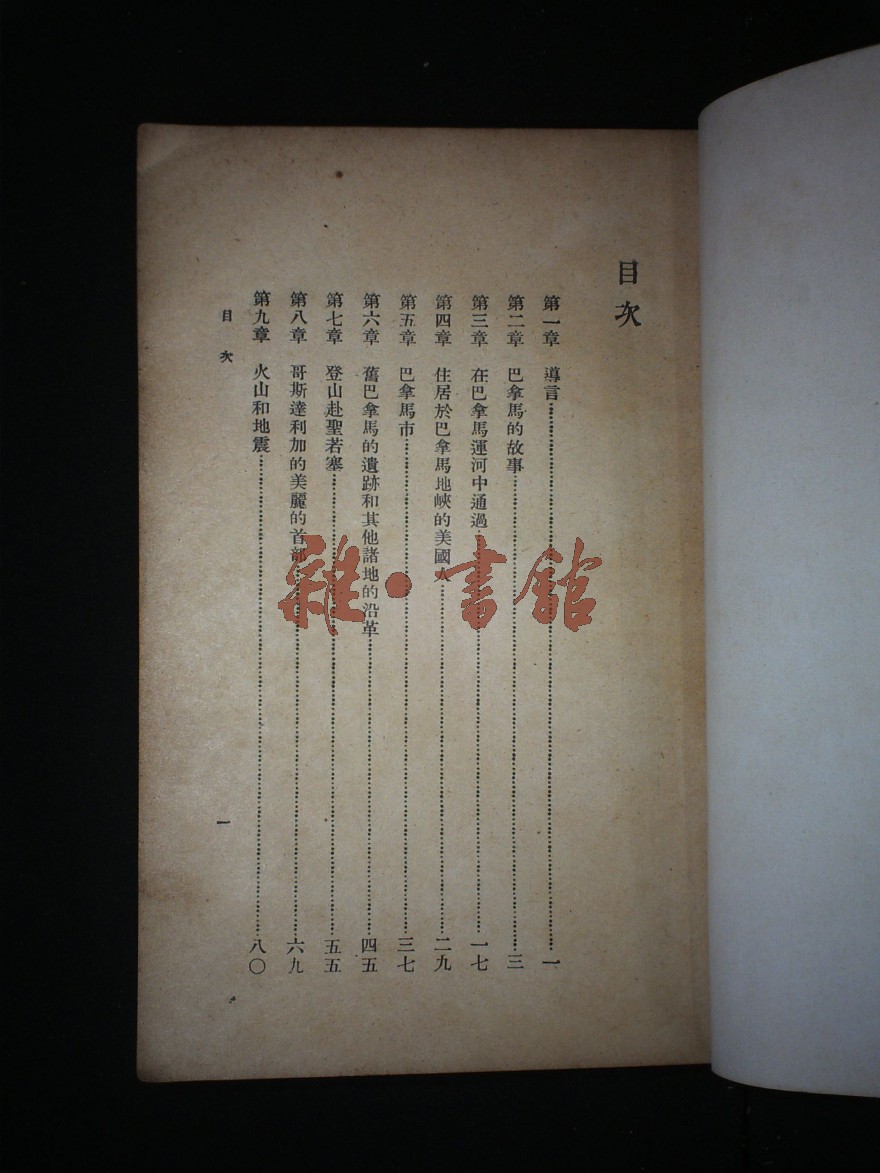 目次
第一章 導言……一
第二章 巴拿馬的故事……三
第三章 在巴拿馬運河中通過……一七
第四章 住居於巴拿馬地峽的美國人……二九
第五章 巴拿馬市……三七
第六章 舊巴拿馬的遺跡和其他諸地的沿革……四五
第七章 登山赴聖若塞……五五
第八章 哥斯達利加的美麗的首部……六九
第九章 火山和地震……八〇
目次
一
雜·書館